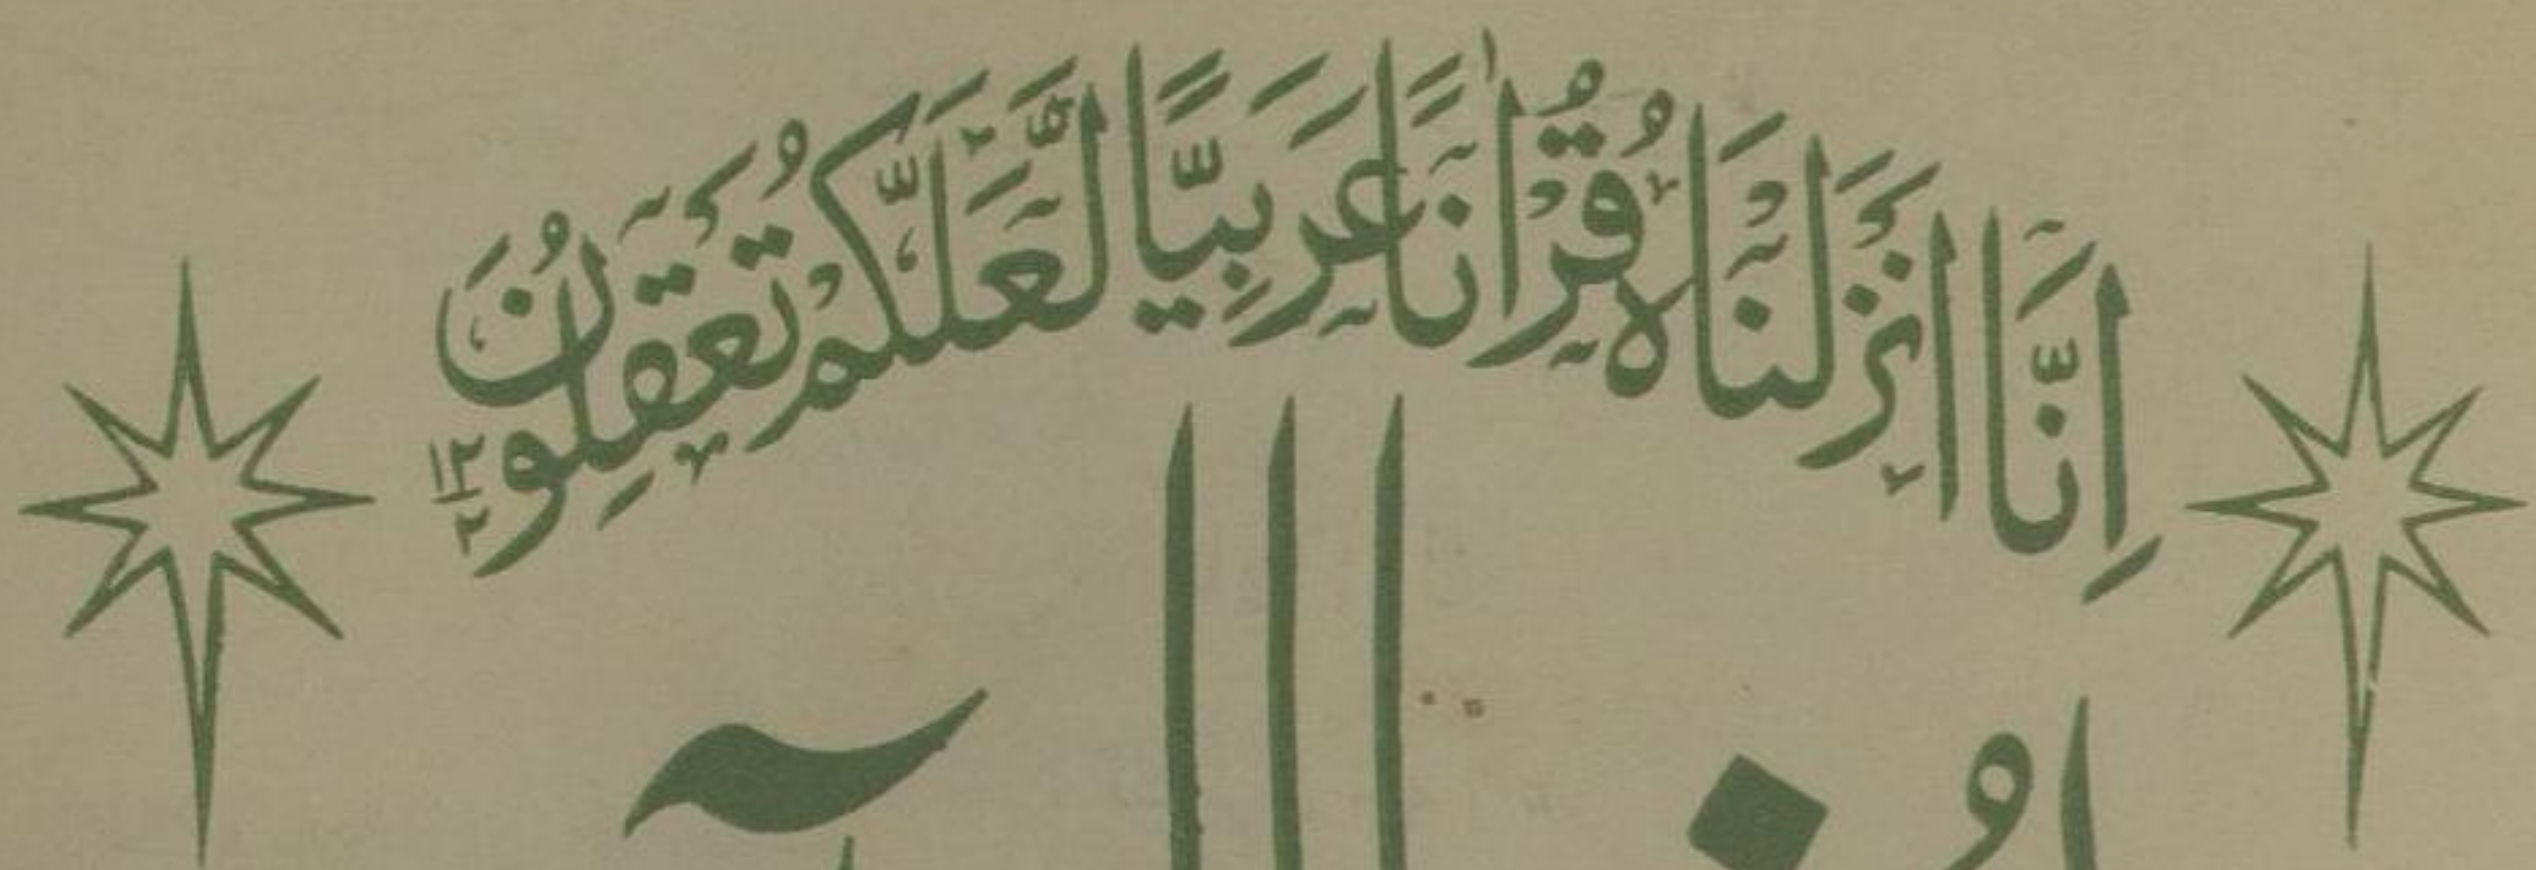 اِنَّا اَنْزَلْنَاهُ قُرْاٰنًا عَرَبِيًّا لَّعَلَّكُمْ تَعْقِلُونَ
١٢
٢